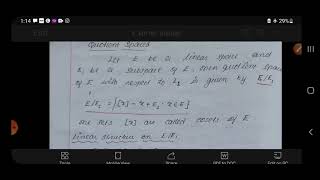 1:14
29%
Quotient Spaces
Let E be a linear space and
E₁ be a subspace of E, then quotient space
of E with respect to E₁ is given by E/E₁
E/E₁ = {[x] = x + E₁ : x ∈ E}
sets [x] are called cosets of E
linear structure on E/E₁
Share
PDF to DOC
Edit on PC